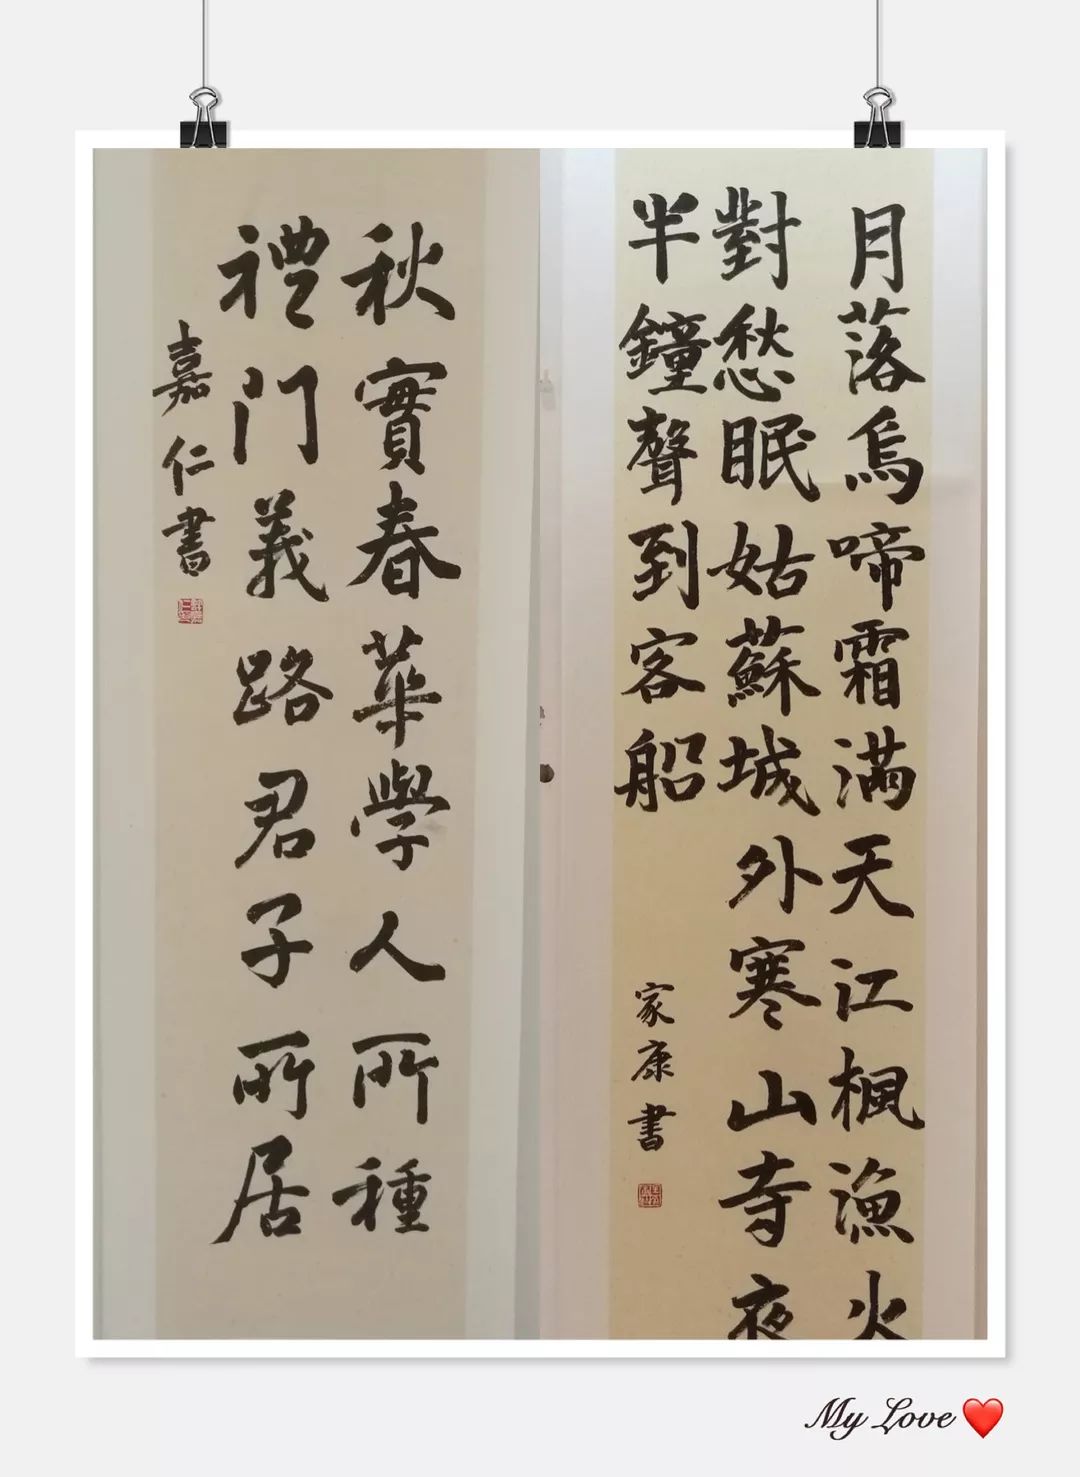 月落烏啼霜滿天江楓漁火
對愁眠姑蘇城外寒山寺夜
半鐘聲到客船
家康書
秋實春華學人所種
禮门義路君子所居
嘉仁書
My Love